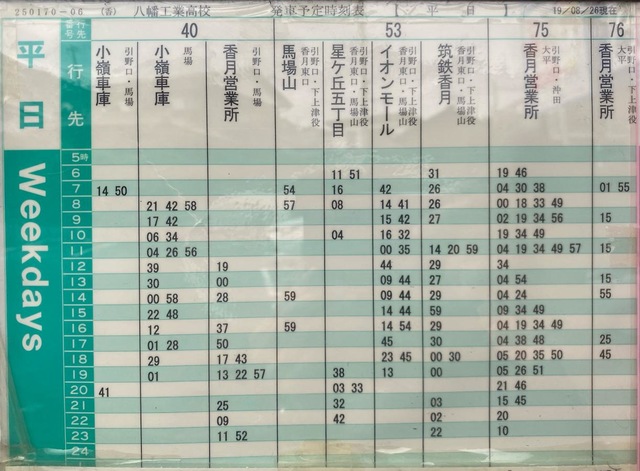 250170-06 (香) 八幡工業高校 発車予定時刻表 【 平 日 】 19/08/26現在
行先番号 40 53 75 76
平日 Weekdays
行先
小嶺車庫 引野口・馬場
小嶺車庫 馬場
香月営業所 引野口・馬場
馬場山 引野口・下上津役 香月東口
星ケ丘五丁目 引野口・下上津役 香月東口・馬場山
イオンモール 引野口・下上津役 香月東口・馬場山
筑鉄香月 引野口・下上津役 香月東口・馬場山
香月営業所 引野口・沖田 大平
香月営業所 引野口・下上津役 大平
5時
6 11 51 31 19 46
7 14 50 54 16 42 26 04 30 38 01 55
8 21 42 58 57 08 14 41 26 00 18 33 49
9 17 42 15 42 27 02 19 34 56 15
10 06 34 04 16 32 19 34 49
11 04 26 56 00 35 14 20 59 04 19 34 49 57 15
12 39 19 44 29 34
13 30 00 09 44 27 04 54 15
14 00 58 28 59 09 44 29 04 24 55
15 22 48 14 44 59 09 34 49
16 12 37 59 14 54 29 04 19 34 49
17 01 28 50 45 30 04 38 48 25
18 29 17 43 23 45 00 30 05 20 35 50 45
19 01 13 22 57 38 13 00 05 26 51
20 41 03 33 21 46
21 25 32 03 15 45
22 09 42 02 20
23 11 52 22 10
24